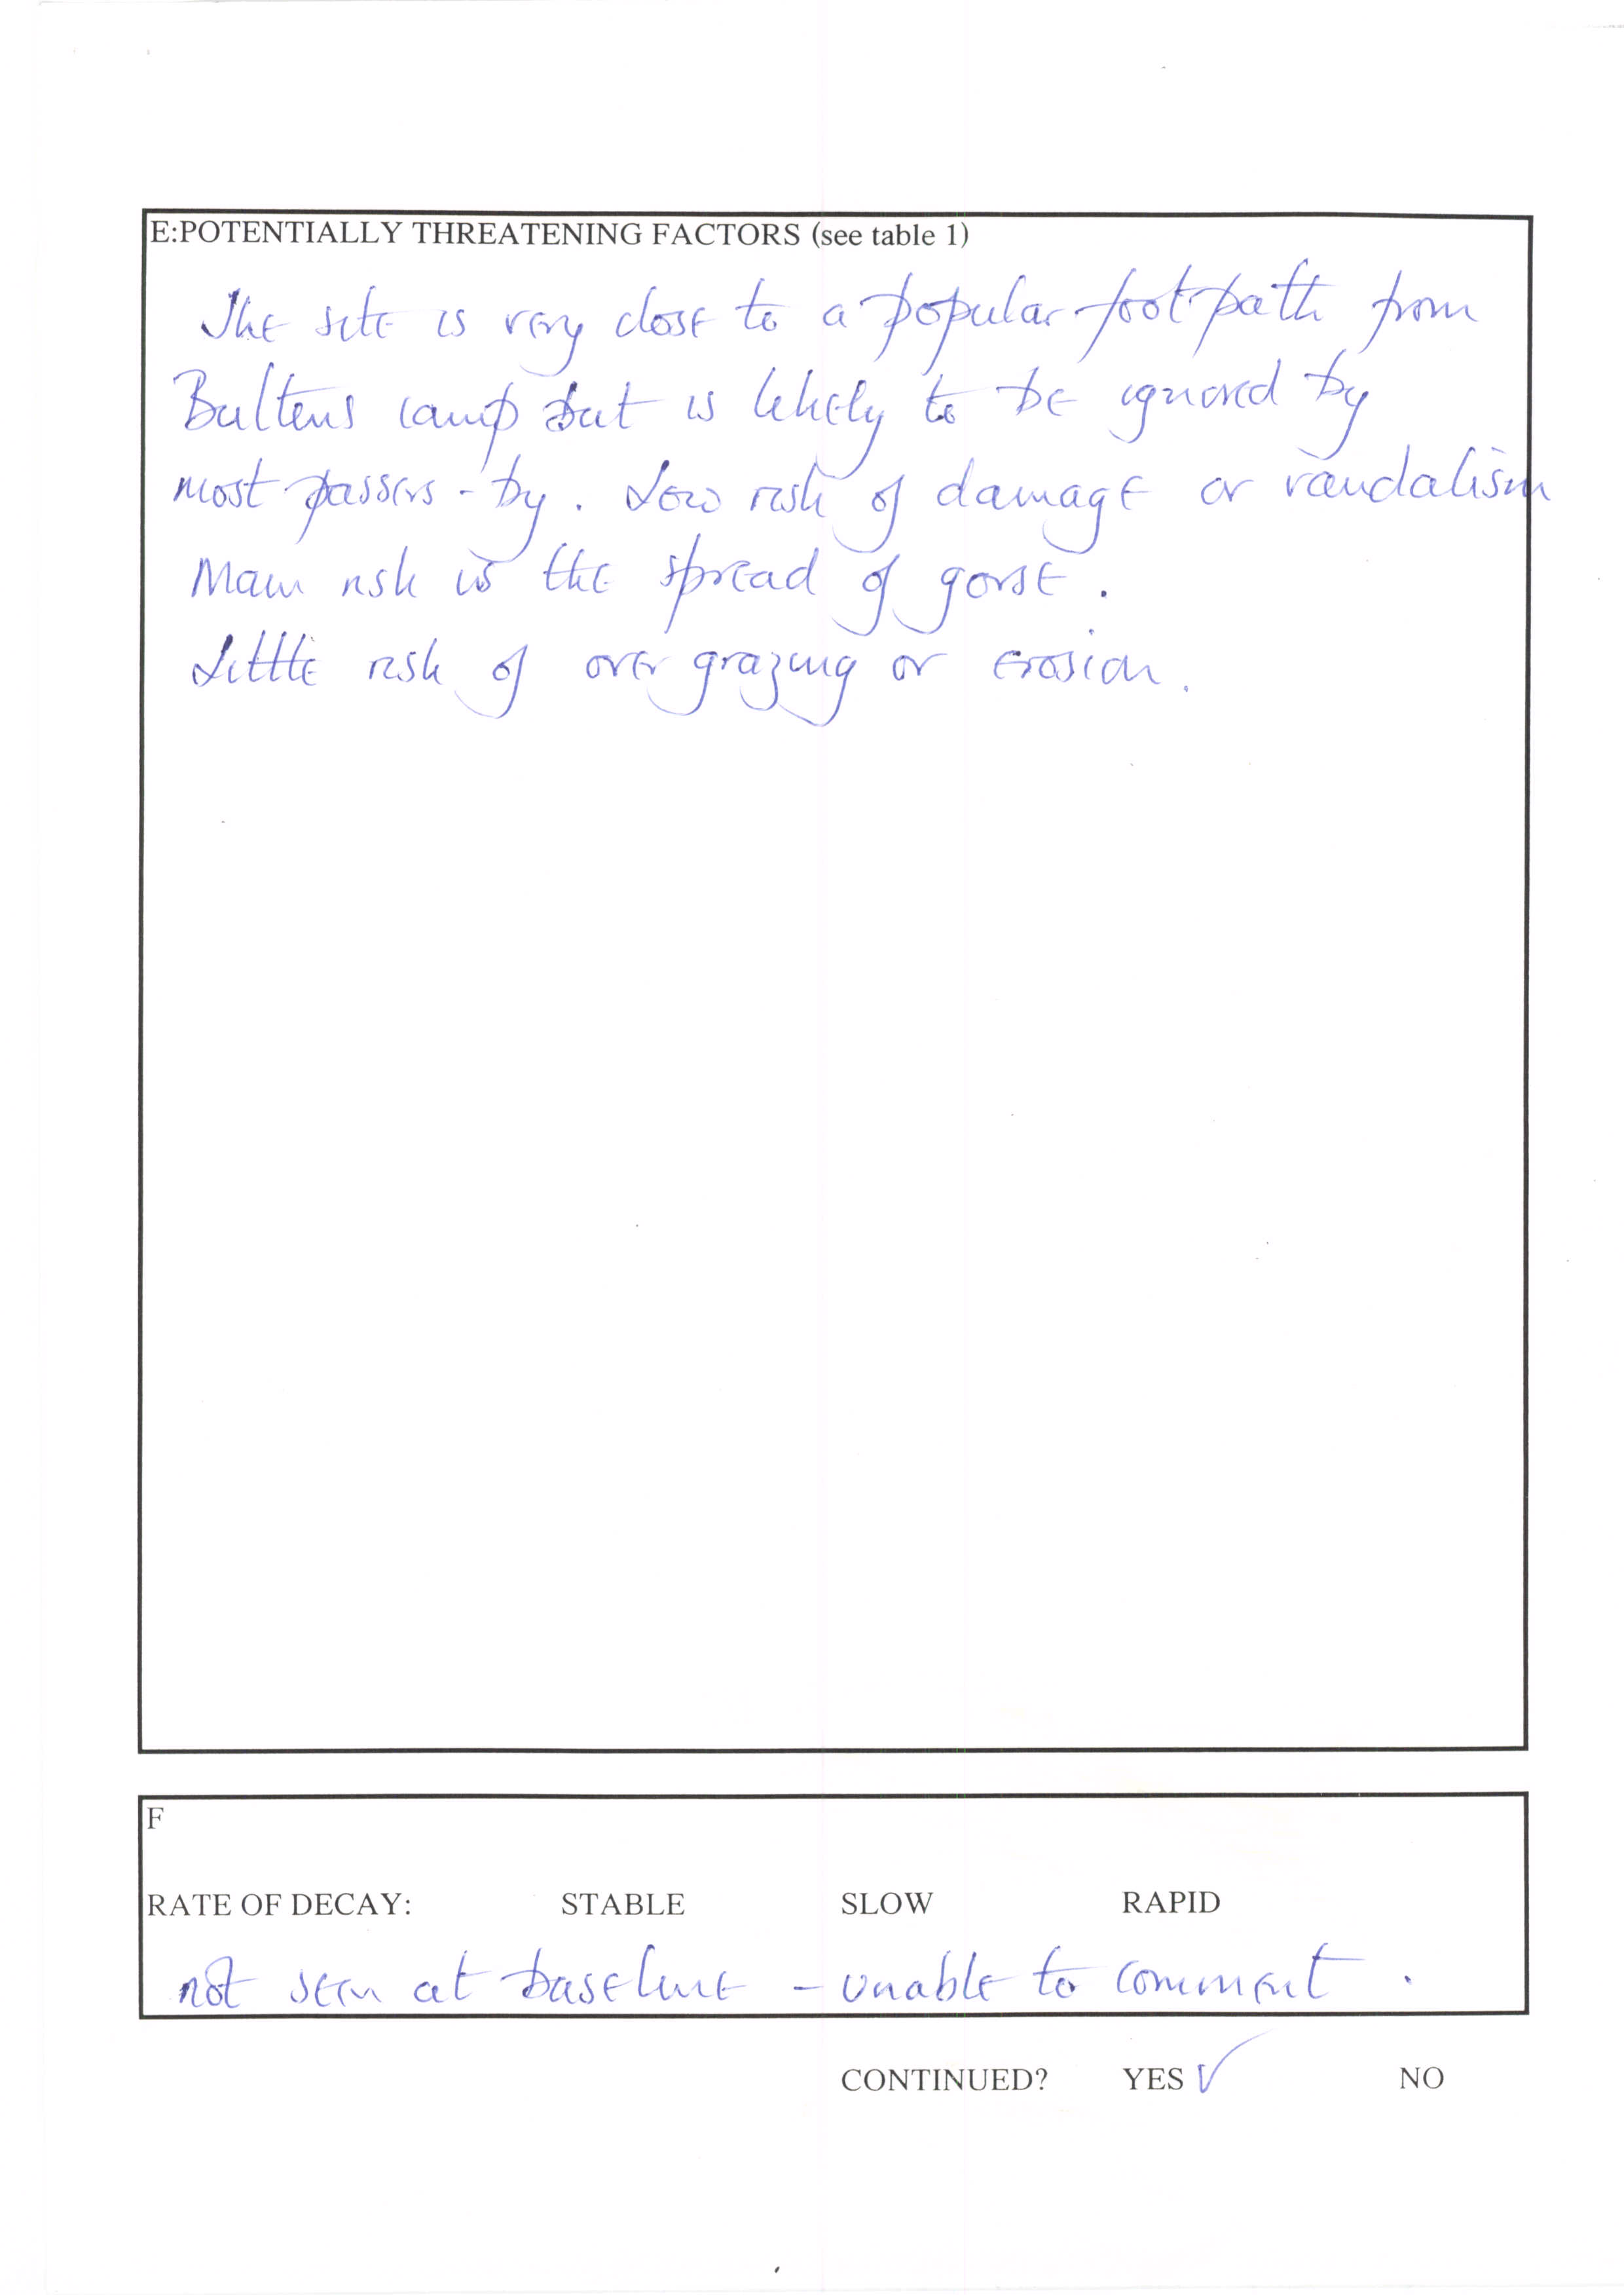 E:POTENTIALLY THREATENING FACTORS (see table 1)
The site is very close to a popular footpath from
camp but is likely to be ignored by
most passers-by. Low risk of damage or vandalism
Main risk is the spread of gorse.
Little risk of over grazing or erosion.
F
RATE OF DECAY: STABLE SLOW RAPID
not seen at baseline - unable to comment.
CONTINUED? YES ✓ NO